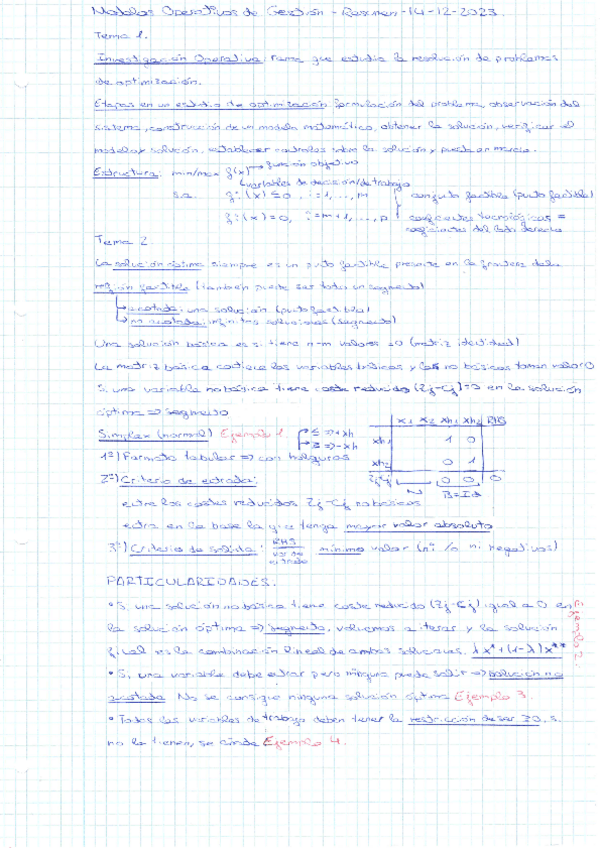 Modelos Operativos de Gestión - Resumen - 14-12-2023.
Tema 1.
Investigación Operativa: rama que estudia la resolución de problemas
de optimización.
Etapas en un estudio de optimización: formulación del problema, observación del
sistema, construcción de un modelo matemático, obtener la solución, verificar el
modelo y solución, establecer controles sobre la solución y puesta en marcha.
Estructura: min/max f(x) → función objetivo
↳ variables de decisión/de trabajo
s.a. gi(x) ≤ 0, i=1,..., m conjunto factible (punto factible)
gi(x)=0, i=m+1,..., p coeficientes tecnológicos =
coeficientes del lado derecho
Tema 2.
La solución óptima siempre es un punto factible presente en la frontera de la
región factible (también puede ser todo un segmento)
↳ acotada: una solución (punto factible)
↳ no acotada: infinitas soluciones (segmento)
Una solución básica es si tiene n-m valores =0 (matriz identidad)
La matriz básica contiene las variables básicas y las no básicas toman valor 0
Si una variable no básica tiene coste reducido (Zj-Cj)=0 en la solución
óptima => segmento
Simplex (normal) Ejemplo 1. ≤ => +xh
≥ => -xh
x1 x2 xh1 xh2 RHS
xh1 1 0
xh2 0 1
Zj-Cj 0 0 0
N B=Id
1º) Formato tabular => con holguras
2º) Criterio de entrada:
entre los costes reducidos Zj-Cj no básicos
entra en la base la que tenga mayor valor absoluto
3º) Criterio de salida: RHS / var de entrada mínimo valor (ni /0 ni negativos)
PARTICULARIDADES:
• Si una solución no básica tiene coste reducido (Zj-Cj) igual a 0 en
la solución óptima => segmento, volvemos a iterar y la solución
final es la combinación lineal de ambas soluciones. λx*+(1-λ)x** Ejemplo 2.
• Si una variable debe entrar pero ninguna puede salir => solución no
acotada. No se consigue ninguna solución óptima Ejemplo 3.
• Todas las variables de trabajo deben tener la restricción de ser ≥0, si
no la tienen, se Ejemplo 4.